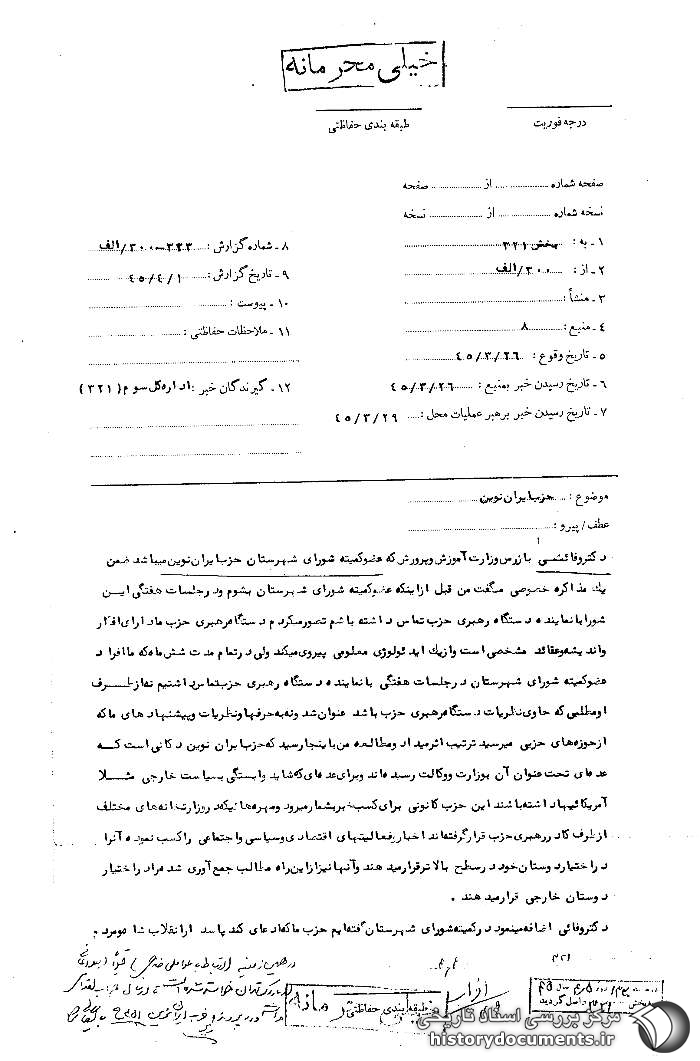 خیلی محرمانه
درجه فوریت
طبقه بندی حفاظتی
صفحه شماره ........ از ........ صفحه
نسخه شماره ........ از ........ نسخه
۱ - به : بخش ۳۲۱
۲ - از : ۳۰۰/الف
۳ - منشأ :
۴ - منبع : ۸
۵ - تاریخ وقوع : ۴۵/۳/۲۶
۶ - تاریخ رسیدن خبر بمنبع : ۴۵/۳/۲۶
۷ - تاریخ رسیدن خبر برهبر عملیات محل : ۴۵/۳/۲۹
۸ - شماره گزارش : ۳۰۰۰۳۳۳/الف
۹ - تاریخ گزارش : ۴۵/۴/۱
۱۰ - پیوست :
۱۱ - ملاحظات حفاظتی :
۱۲ - گیرندگان خبر : اداره کل سوم (۳۲۱)
موضوع : حزب ایران نوین
عطف / پیرو :
دکتروفائی بازرس وزارت آموزش وپرورش که عضوکمیته شورای شهرستان حزب ایران نوین میباشد ضمن
یك مذاکره خصوصی میگفت من قبل ازاینکه عضوکمیته شورای شهرستان بشوم ودرجلسات هفتگی این
شورابانماینده دستگاه رهبری حزب تماس داشته باشم تصورمیکردم دستگاه رهبری حزب مادارای افکار
واندیشه وعقائد مشخصی است وازیك ایدئولوژی معلومی پیروی میکند ولی درتمام مدت شش ماه که ماافراد
عضوکمیته شورای شهرستان درجلسات هفتگی بانماینده دستگاه رهبری حزب تماس داشتیم نه ازطرف
اومطلبی که حاوی نظریات دستگاه رهبری حزب باشد عنوان شد ونه به حرفهاونظریات وپیشنهادهای ماکه
ازحوزه های حزبی میرسید ترتیب اثرمیداد ومطالعه من باینجارسید که حزب ایران نوین دکانی است که
عده ای تحت عنوان آن بوزارت ووکالت رسیده اند وبرای عده ای که شاید وابستگی بسیاست خارجی مثلا
آمریکائیها داشته باشند این حزب کانونی برای کسب خبر بشمارمیرود ومهره هائیکه در وزارتخانه های مختلف
ازطرف کادر رهبری حزب قرارگرفته اند اخبار وفعالیتهای اقتصادی وسیاسی واجتماعی راکسب نموده آنرا
دراختیار دوستان خود درسطح بالاترقرارمیدهند وآنهانیزازاین راه مطالب جمع آوری شده رادراختیار
دوستان خارجی قرارمیدهند .
دکتروفائی اضافه مینمود درکمیته شورای شهرستان گفته ایم حزب ماکه ادعای کند پاسدارانقلاب شاه ومردم
۳۲۱
طبقه بندی حفاظتی
مرکز بررسی اسناد تاریخی
historydocuments.ir